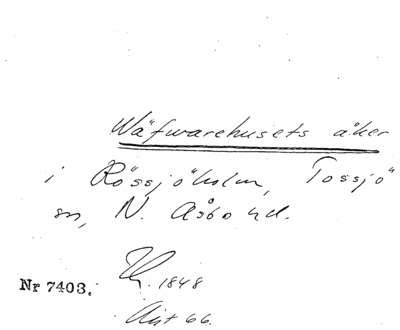 Wäfwarehusets åker
i Rössjöholm, Tossjö
sn, N. Åsbo hd.
1848
Nr 7403.
66.